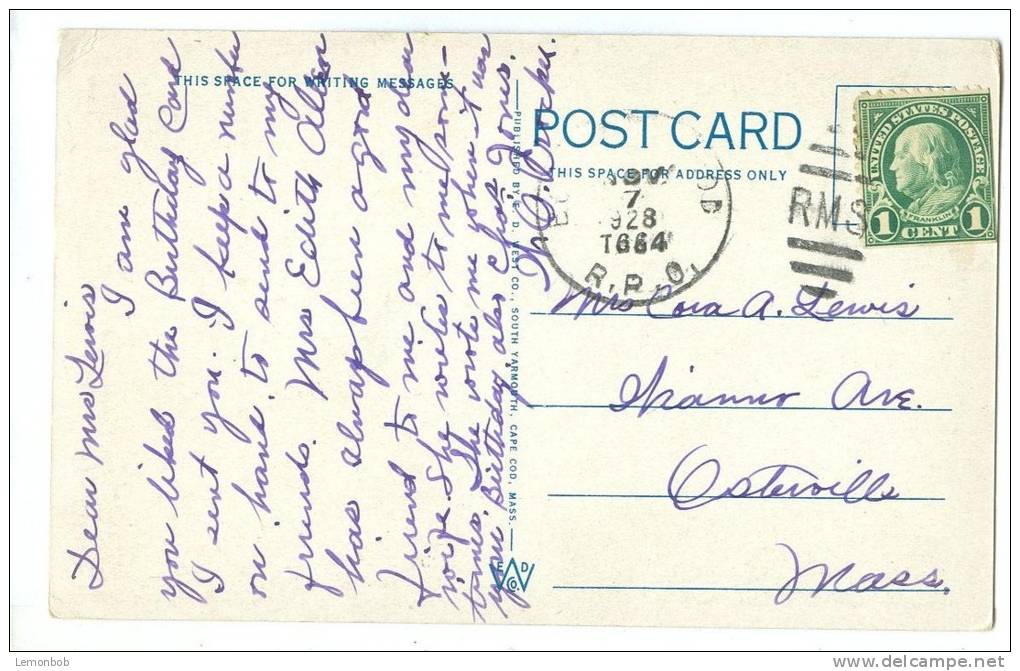 THIS SPACE FOR WRITING MESSAGES
Dear Mrs Lewis
I am glad
you liked the Birthday Card
I sent you. I keep a number
on hand, to send to my
friends. Mrs Edith Allen
has always been a good
friend to me and my dear
wife. She writes to me some-
times. She wrote me when it was
your Birthday also Chas Jones.
H. O.
PUBLISHED BY E. D. WEST CO., SOUTH YARMOUTH, CAPE COD, MASS.
E D
W
CO.
POST CARD
THIS SPACE FOR ADDRESS ONLY
7
1928
T664
R.P.O.
RMS
UNITED STATES POSTAGE
FRANKLIN
1 CENT 1
Mrs Cora A. Lewis
Wianno Ave.
Osterville
Mass.
Lemonbob
www.delcampe.net